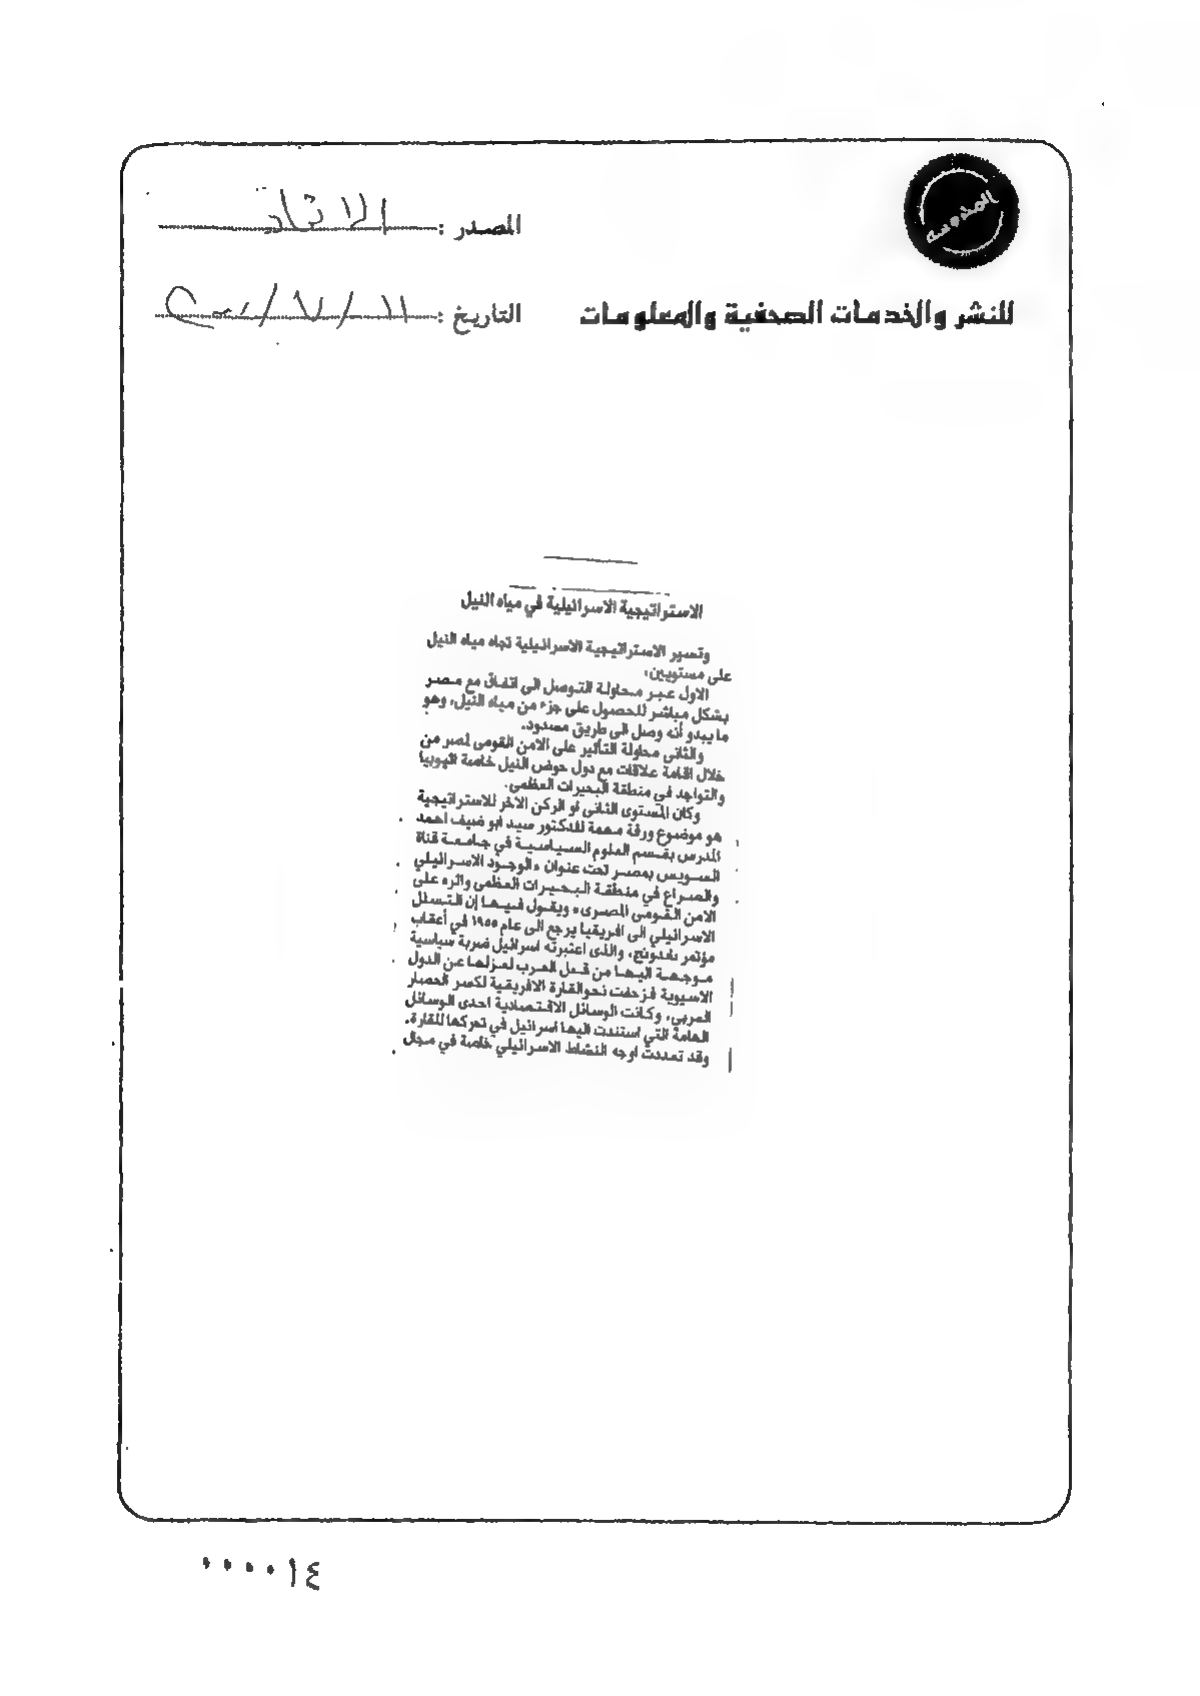 المصدر :
للنشر والخدمات الصحفية والمعلومات
التاريخ : ١١ / ٧ /
الاستراتيجية الاسرائيلية في مياه النيل
وتسير الاستراتيجية الاسرائيلية تجاه مياه النيل
على مستويين.
الاول عبر محاولة التوصل الى اتفاق مع مصر
بشكل مباشر للحصول على جزء من مياه النيل، وهو
ما يبدو أنه وصل الى طريق مسدود.
والثانى محاولة التأثير على الامن القومى لمصر من
خلال اقامة علاقات مع دول حوض النيل خاصة اثيوبيا
والتواجد في منطقة البحيرات العظمى.
وكان المستوى الثانى او الركن الاخر للاستراتيجية
هو موضوع ورقة مهمة للدكتور سيد ابو ضيف احمد
المدرس بقسم العلوم السياسية في جامعة قناة
السويس بمصر تحت عنوان «الوجود الاسرائيلي
والصراع في منطقة البحيرات العظمى واثره على
الامن القومى المصرى» ويقول فيها إن التسلل
الاسرائيلي الى افريقيا يرجع الى عام ١٩٥٥ في أعقاب
مؤتمر باندونج، والذى اعتبرته اسرائيل ضربة سياسية
موجهة اليها من قبل العرب لعزلها عن الدول
الاسيوية فزحفت نحو القارة الافريقية لكسر الحصار
العربى، وكانت الوسائل الاقتصادية احدى الوسائل
الهامة التي استندت اليها اسرائيل في تحركها للقارة.
وقد تعددت اوجه النشاط الاسرائيلي خاصة في مجال
٠٠٠٠١٤